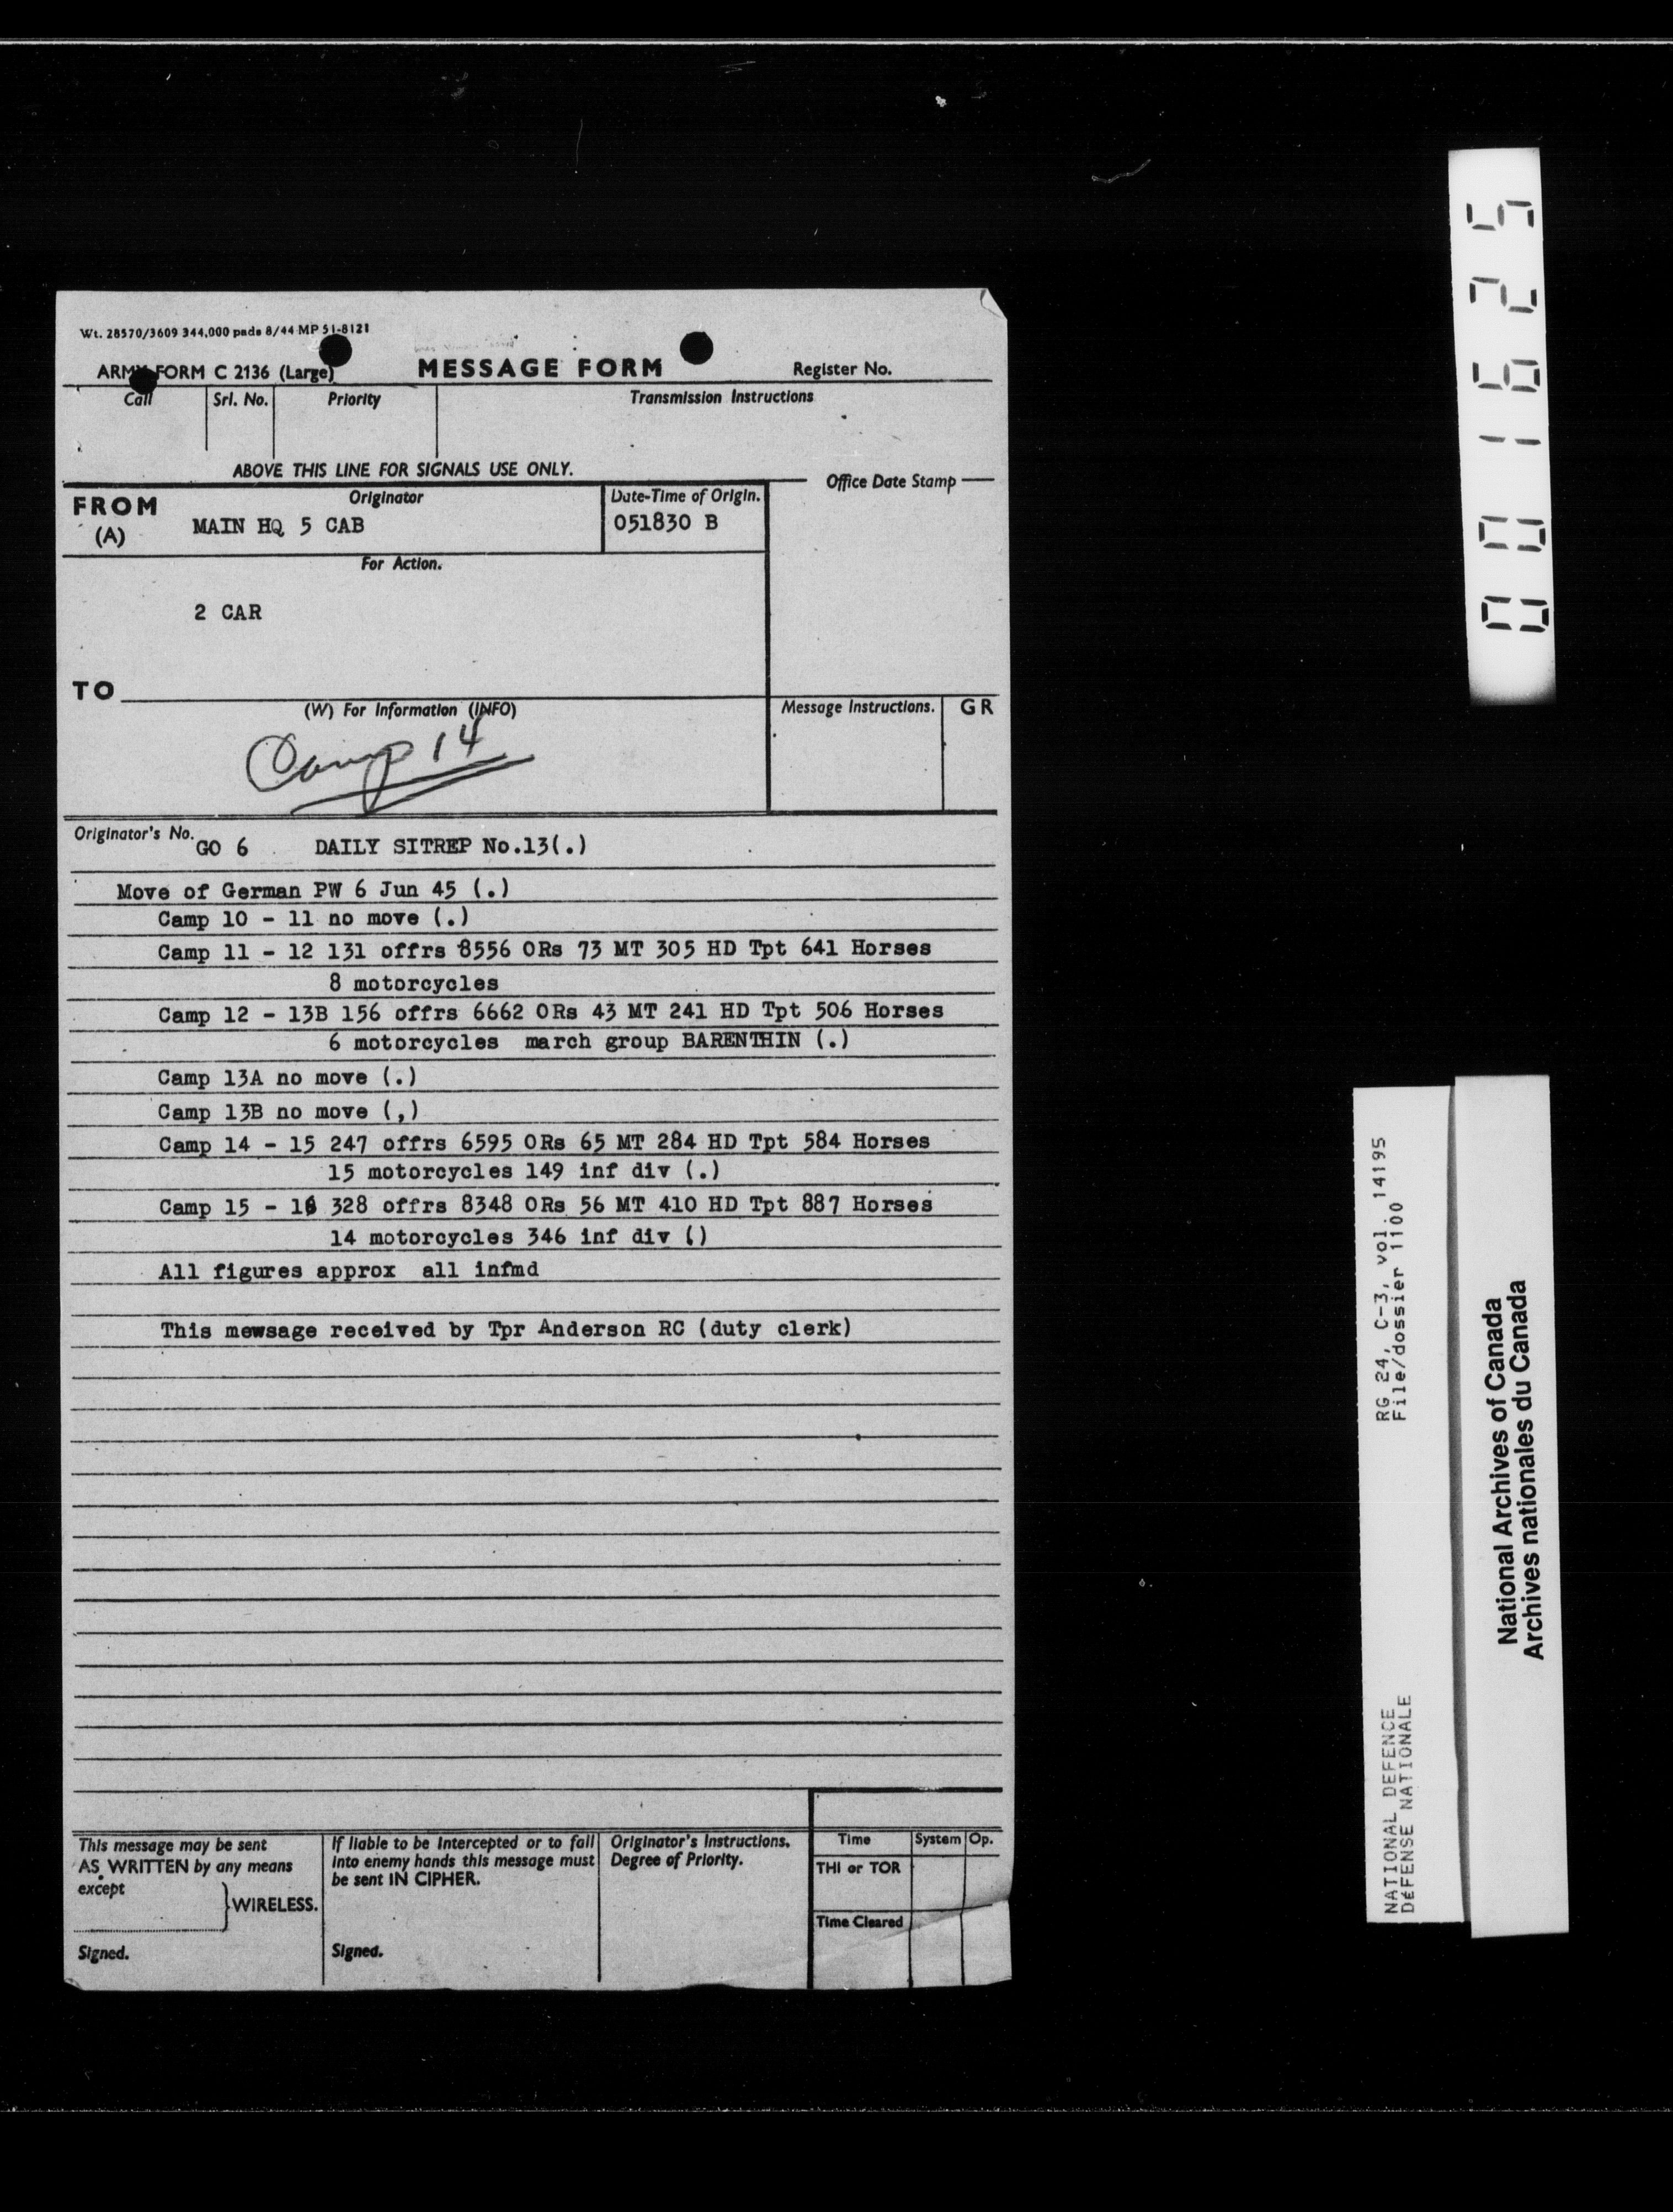 Wt. 28570/3609 344,000 pads 8/44 MP 51-8121
ARMY FORM C 2136 (Large) MESSAGE FORM Register No.
Call Srl. No. Priority Transmission Instructions
ABOVE THIS LINE FOR SIGNALS USE ONLY.
Office Date Stamp
FROM Originator Date-Time of Origin.
(A) MAIN HQ 5 CAB 051830 B
For Action.
2 CAR
TO
(W) For Information (INFO) Message Instructions. GR
Camp 14
Originator's No. GO 6 DAILY SITREP No.13(.)
Move of German PW 6 Jun 45 (.)
Camp 10 - 11 no move (.)
Camp 11 - 12 131 offrs 8556 ORs 73 MT 305 HD Tpt 641 Horses
8 motorcycles
Camp 12 - 13B 156 offrs 6662 ORs 43 MT 241 HD Tpt 506 Horses
6 motorcycles march group BARENTHIN (.)
Camp 13A no move (.)
Camp 13B no move (,)
Camp 14 - 15 247 offrs 6595 ORs 65 MT 284 HD Tpt 584 Horses
15 motorcycles 149 inf div (.)
Camp 15 - 16 328 offrs 8348 ORs 56 MT 410 HD Tpt 887 Horses
14 motorcycles 346 inf div ()
All figures approx all infmd
This mewsage received by Tpr Anderson RC (duty clerk)
This message may be sent
AS WRITTEN by any means
except
WIRELESS.
Signed.
If liable to be intercepted or to fall
into enemy hands this message must
be sent IN CIPHER.
Signed.
Originator's Instructions.
Degree of Priority.
Time System Op.
THI or TOR
Time Cleared
001625
RG 24, C-3, vol. 14195
File/dossier 1100
NATIONAL DEFENCE
DÉFENSE NATIONALE
National Archives of Canada
Archives nationales du Canada